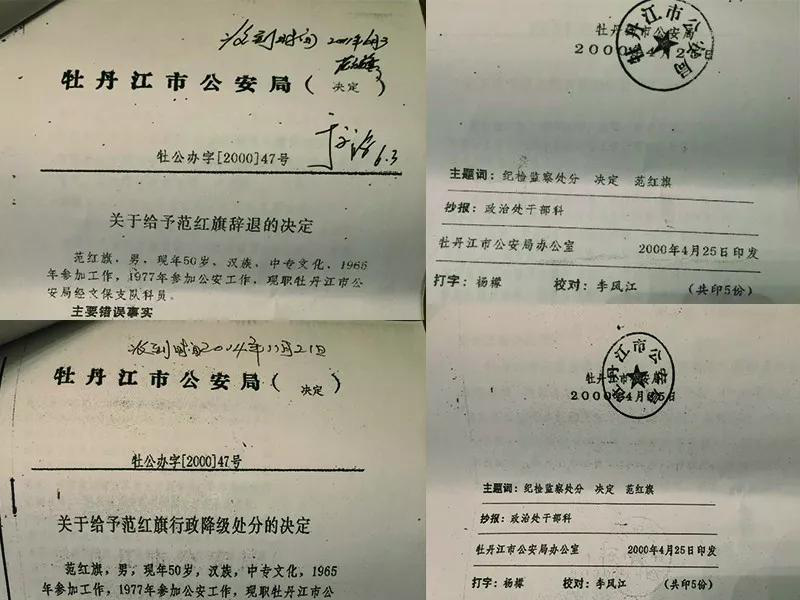 收到时间 2001年6月3
牡丹江市公安局（决定）
6.3
牡公办字[2000]47号
关于给予范红旗辞退的决定
范红旗，男，现年50岁，汉族，中专文化，1965
年参加工作，1977年参加公安工作，现职牡丹江市公
安局经文保支队科员。
主要错误事实
牡丹江市公安局
2000年4月2 日
牡丹江市公安局
主题词：纪检监察处分 决定 范红旗
抄报：政治处干部科
牡丹江市公安局办公室 2000年4月25日印发
打字：杨檬 校对：李凤江 （共印5份）
收到时间2014年11月21日
牡丹江市公安局（决定）
牡公办字[2000]47号
关于给予范红旗行政降级处分的决定
范红旗，男，现年50岁，汉族，中专文化，1965
年参加工作，1977年参加公安工作，现职牡丹江市公
牡丹江市公安局
2000年4月 5日
牡丹江市公安局
主题词：纪检监察处分 决定 范红旗
抄报：政治处干部科
牡丹江市公安局办公室 2000年4月25日印发
打字：杨檬 校对：李凤江 （共印5份）